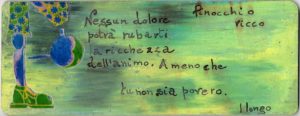 Pinocchio
ricco
Nessun dolore
potrà rubarti
la ricchezza
dell'animo. A meno che
tu non sia povero.